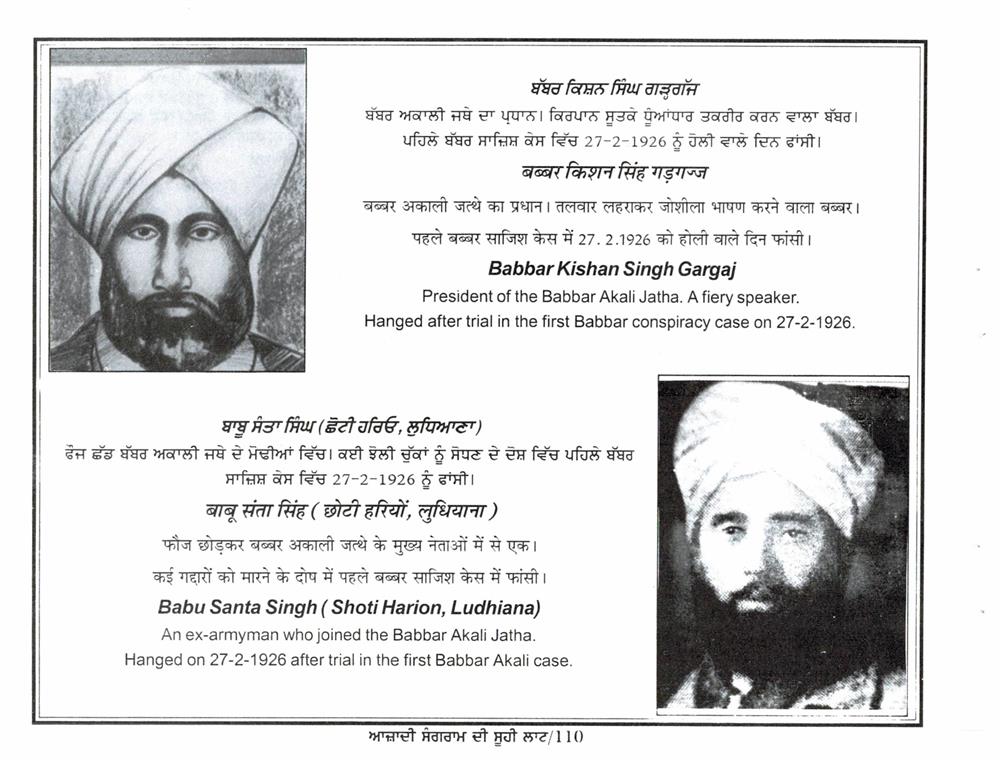 ਬੱਬਰ ਕਿਸ਼ਨ ਸਿੰਘ ਗੜ੍ਹਗੱਜ
ਬੱਬਰ ਅਕਾਲੀ ਜਥੇ ਦਾ ਪ੍ਰਧਾਨ। ਕਿਰਪਾਨ ਸੂਤਕੇ ਧੂੰਆਂਧਾਰ ਤਕਰੀਰ ਕਰਨ ਵਾਲਾ ਬੱਬਰ।
ਪਹਿਲੇ ਬੱਬਰ ਸਾਜ਼ਿਸ਼ ਕੇਸ ਵਿੱਚ 27-2-1926 ਨੂੰ ਹੋਲੀ ਵਾਲੇ ਦਿਨ ਫਾਂਸੀ।
बब्बर किशन सिंह गड़गज्ज
बब्बर अकाली जत्थे का प्रधान। तलवार लहराकर जोशीला भाषण करने वाला बब्बर।
पहले बब्बर साजिश केस में 27.2.1926 को होली वाले दिन फांसी।
Babbar Kishan Singh Gargaj
President of the Babbar Akali Jatha. A fiery speaker.
Hanged after trial in the first Babbar conspiracy case on 27-2-1926.
ਬਾਬੂ ਸੰਤਾ ਸਿੰਘ (ਛੋਟੀ ਹਰਿਓ, ਲੁਧਿਆਣਾ)
ਫੌਜ ਛੱਡ ਬੱਬਰ ਅਕਾਲੀ ਜਥੇ ਦੇ ਮੋਢੀਆਂ ਵਿੱਚ। ਕਈ ਝੋਲੀ ਚੁੱਕਾਂ ਨੂੰ ਸੋਧਣ ਦੇ ਦੋਸ਼ ਵਿੱਚ ਪਹਿਲੇ ਬੱਬਰ
ਸਾਜ਼ਿਸ਼ ਕੇਸ ਵਿੱਚ 27-2-1926 ਨੂੰ ਫਾਂਸੀ।
बाबू संता सिंह ( छोटी हरियों, लुधियाना )
फौज छोड़कर बब्बर अकाली जत्थे के मुख्य नेताओं में से एक।
कई गद्दारों को मारने के दोष में पहले बब्बर साजिश केस में फांसी।
Babu Santa Singh ( Shoti Harion, Ludhiana)
An ex-armyman who joined the Babbar Akali Jatha.
Hanged on 27-2-1926 after trial in the first Babbar Akali case.
ਆਜ਼ਾਦੀ ਸੰਗਰਾਮ ਦੀ ਸੂਹੀ ਲਾਟ/110